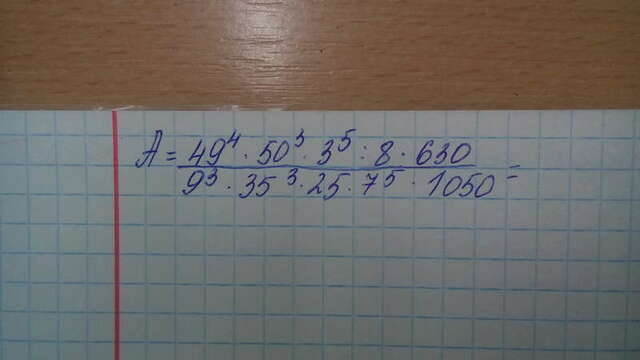 A = 49⁴ · 50³ · 3⁵ : 8 · 630
9³ · 35³ · 25 · 7⁵ · 1050 =